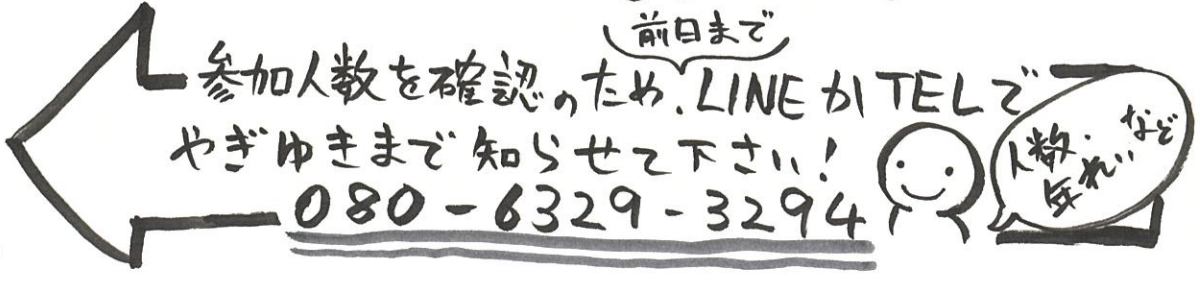 前日まで
参加人数を確認のため、LINEかTELで
やぎゆきまで知らせて下さい!
080-6329-3294
人数・
年れいなど